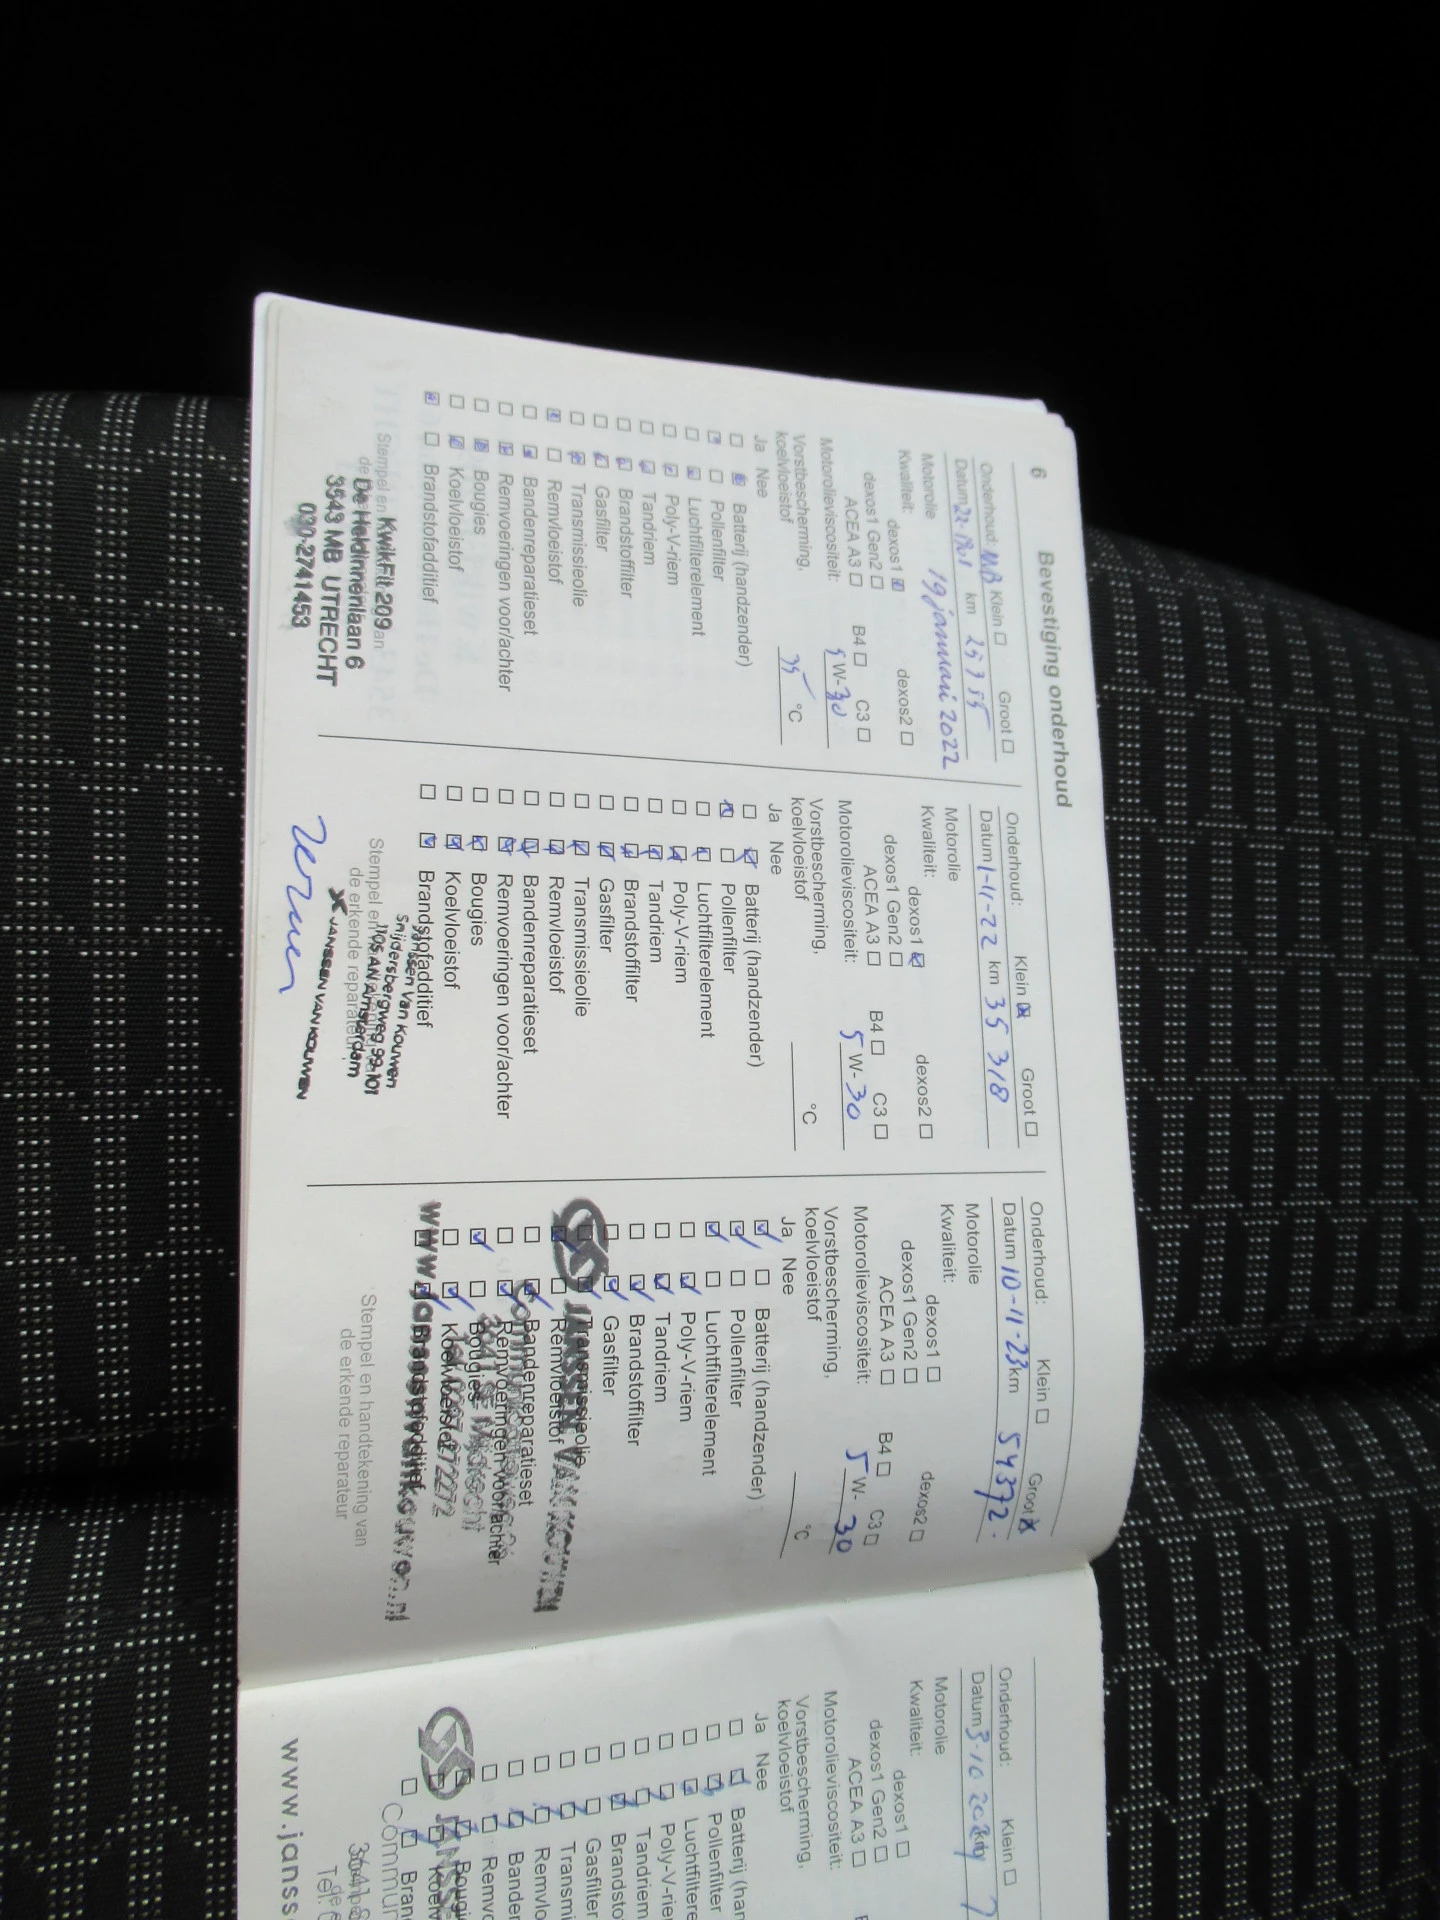 6
Bevestiging onderhoud
Onderhoud: MB Klein ☐ Groot ☐
Datum km 25755
19 januari 2022
Motorolie
Kwaliteit: dexos1 ☒ dexos2 ☐
dexos1 Gen2 ☐
ACEA A3 ☐ B4 ☐ C3 ☐
Motorolieviscositeit: 5 W- 30
Vorstbescherming,
koelvloeistof 35 °C
Ja Nee
☐ ☒ Batterij (handzender)
☒ ☐ Pollenfilter
☐ ☒ Luchtfilterelement
☐ ☒ Poly-V-riem
☐ ☒ Tandriem
☐ ☒ Brandstoffilter
☐ ☒ Gasfilter
☐ ☒ Transmissieolie
☒ ☐ Remvloeistof
☐ ☒ Bandenreparatieset
☐ ☒ Remvoeringen voor/achter
☐ ☒ Bougies
☐ ☒ Koelvloeistof
☒ ☐ Brandstofadditief
Stempel en
KwikFit 209
De Heldinnenlaan 6
3543 MB UTRECHT
030-2741453
Onderhoud: Klein ☒ Groot ☐
Datum 1-11-22 km 35 318
Motorolie
Kwaliteit: dexos1 ☒ dexos2 ☐
dexos1 Gen2 ☐
ACEA A3 ☐ B4 ☐ C3 ☐
Motorolieviscositeit: 5 W- 30
Vorstbescherming,
koelvloeistof °C
Ja Nee
☐ ☒ Batterij (handzender)
☒ ☐ Pollenfilter
☐ ☒ Luchtfilterelement
☐ ☒ Poly-V-riem
☐ ☒ Tandriem
☐ ☒ Brandstoffilter
☐ ☒ Gasfilter
☐ ☒ Transmissieolie
☐ ☒ Remvloeistof
☐ ☒ Bandenreparatieset
☐ ☒ Remvoeringen voor/achter
☐ ☒ Bougies
☐ ☒ Koelvloeistof
☐ ☒ Brandstofadditief
Janssen Van Kouwen
Snijdersbergweg 99-101
1105 AN Amsterdam
Stempel en
de erkende reparateur
JANSSEN VAN KOUWEN
Onderhoud: Klein ☐ Groot ☒
Datum 10-11-23 km 54372.
Motorolie
Kwaliteit: dexos1 ☐ dexos2 ☐
dexos1 Gen2 ☐
ACEA A3 ☐ B4 ☐ C3 ☐
Motorolieviscositeit: 5 W- 30
Vorstbescherming,
koelvloeistof °C
Ja Nee
☑ ☐ Batterij (handzender)
☑ ☐ Pollenfilter
☑ ☐ Luchtfilterelement
☐ ☑ Poly-V-riem
☐ ☑ Tandriem
☐ ☑ Brandstoffilter
☐ ☑ Gasfilter
☐ ☑ Transmissieolie
☑ ☐ Remvloeistof
☐ ☑ Bandenreparatieset
☐ ☑ Remvoeringen voor/achter
☑ ☐ Bougies
☐ ☑ Koelvloeistof
☐ ☑ Brandstofadditief
JANSSEN VAN KOUWEN
Mijdrecht
0297-272272
www.janssenvankouwen.nl
Stempel en handtekening van
de erkende reparateur
Onderhoud: Klein ☐
Datum 3-10 km 7
Motorolie
Kwaliteit: dexos1 ☐
dexos1 Gen2 ☐
ACEA A3 ☐
Motorolieviscositeit:
Vorstbescherming,
koelvloeistof
Ja Nee
☐ ☑ Batterij (han
☐ ☑ Pollenfilter
☐ ☑ Luchtfiltere
☐ ☑ Poly-V-rie
☐ ☑ Tandriem
☐ ☑ Brandsto
☐ ☑ Gasfilter
☐ ☑ Transmi
☐ ☑ Remvlo
☐ ☑ Banden
☐ ☑ Remvo
☐ ☑ Bougi
☐ ☑ Koelv
☐ ☑ Bran
JANSS
Commun
3641
Tel.
www.janss